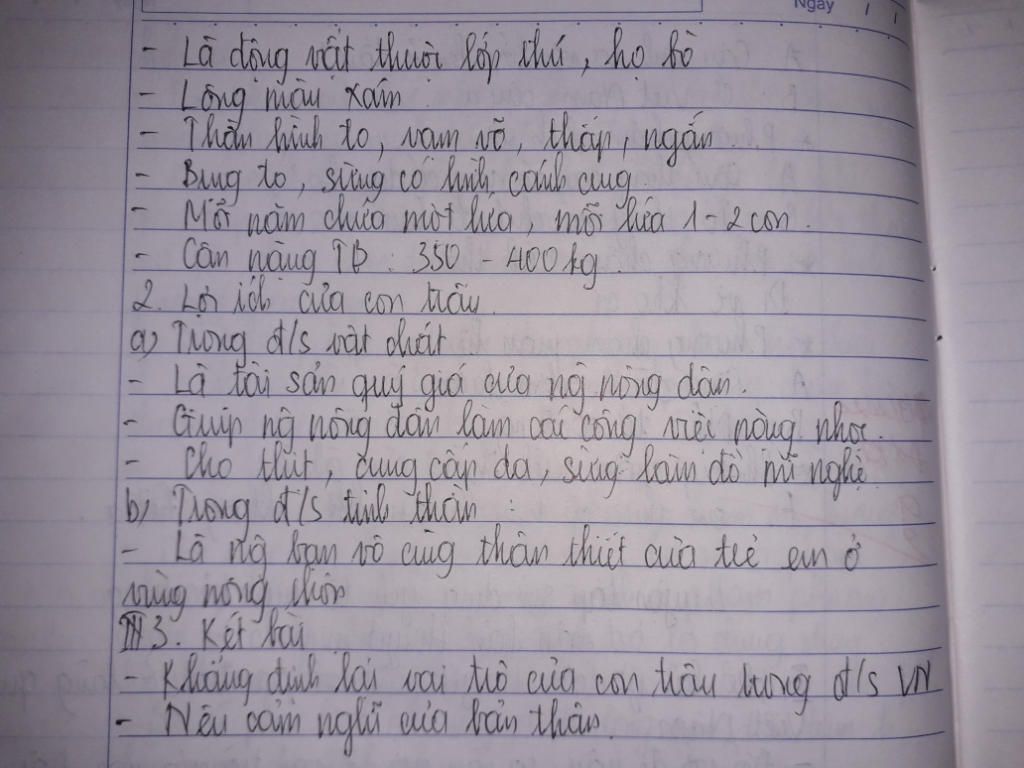 Ngày / /
- Là động vật thuộc lớp thú, họ bò
- Lông màu xám
- Thân hình to, vạm vỡ, thấp, ngắn
- Bụng to, sừng có hình cánh cung
- Mỗi năm chửa một lứa, mỗi lứa 1 - 2 con.
- Cân nặng TB : 350 - 400 kg.
2. Lợi ích của con trâu
a) Trong đ/s vật chất
- Là tài sản quý giá của ng nông dân.
- Giúp ng nông dân làm các công việc nặng nhọc.
- Cho thịt, cung cấp da, sừng làm đồ mĩ nghệ
b) Trong đ/s tinh thần
- Là ng bạn vô cùng thân thiết của trẻ em ở
vùng nông thôn
3. Kết bài
- Khẳng định lại vai trò của con trâu trong đ/s VN
- Nêu cảm nghĩ của bản thân.